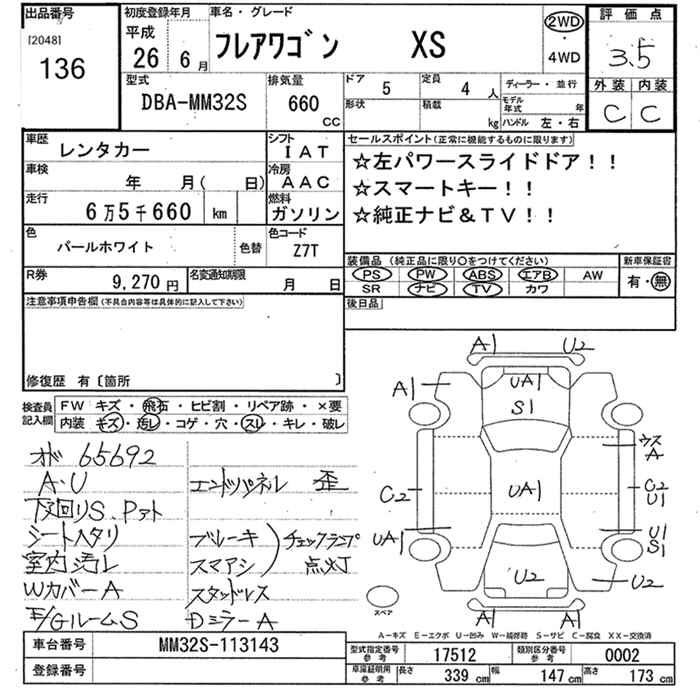 出品番号
[2048]
136
初度登録年月
平成
26 6月
車名・グレード
フレアワゴン XS
2WD
・
4WD
評価点
3.5
外装 内装
C C
型式
DBA-MM32S
排気量
660
CC
ドア 5
形状
定員 4 人
積載 kg
ディーラー・並行
モデル年式 年
ハンドル 左・右
車歴
レンタカー
シフト
IAT
車検
年 月( 日)
冷房
AAC
走行
6万5千660 km
燃料
ガソリン
色
パールホワイト
色替
色コード
Z7T
R券
9,270円
名変通知期限
月 日
セールスポイント(正常に機能するものに限ります)
☆左パワースライドドア!!
☆スマートキー!!
☆純正ナビ&TV!!
装備品(純正品に限り○をつけてください)
PS PW ABS エアB AW
SR ナビ TV カワ
新車保証書
有・無
後日品
注意事項申告欄(不具合内容等は具体的に記入して下さい)
修復歴 有〔箇所 〕
検査員
記入欄
FW キズ・飛石・ヒビ割・リペア跡・×要
内装 キズ・汚レ・コゲ・穴・スレ・キレ・破レ
オド 65692
A・U
下廻りS.Pアト
シートヘタリ
室内汚レ
WカバーA
E/GルームS
エンドパネル 歪
ブレーキ
スマアシ
チェックランプ
点灯
スタッドレス
DミラーA
A1 U2
A1 UA1
S1
ウス
A
C2 UA1 C2
U1
UA1 U1
S1
U2 U2
A1 A1
スペア
A-キズ E-エクボ U-凹み W-補修跡 S-サビ C-腐食 XX-交換済
車台番号
MM32S-113143
登録番号
型式指定番号
参考
17512
類別区分番号
参考
0002
車庫証明用
参考
長さ 339 cm 幅 147 cm 高さ 173 cm